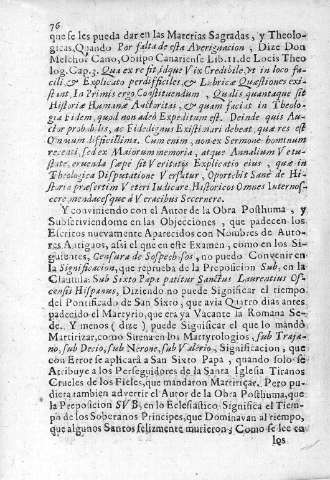 76
que se les pueda dar en las Materias Sagradas, y Theolo-
gicas, Quando Por falta de esta Averiguacion, Dize Don
Melchor Cano, Obispo Canariense Lib. 11. de Locis Theo
log. Cap. 3. Qua ex re fit idque Vix Credibile, Vt in loco fa-
cili, & Explicato perdifficiles, & Lubricæ Quæstiones exi-
stant. In Primis ergo Constituendum, Qualis quantaque sit
Historiæ Humanæ Auctoritas, & quam facias in Theolo-
gia Fidem, quod non adeo Expeditum est. Deinde quis Au-
ctor probabilis, ac Fidedignus Existimari debeat, quæ res est
Omnium difficillima. Cum enim, non ex Sermone hominum
recenti, sed ex Maiorum memoria, atque Annalium Vetu-
state, eruenda sæpe sit Veritatis Explicatio eius, quæ in
Theologica Disputatione Versatur, Oportebit Sane de Hi-
storia præsertim Veteri Iudicare. Historicos Omnes Internos-
cere, mendacesque à Veracibus Secernere.
Y conviniendo con el Autor de la Obra Posthuma, y
Subscriviendome en las Objecciones, que padecen los
Escritos nuevamente Aparecidos con Nombres de Auto-
res Antigos, assi el que en este Examen, como en los Si-
guientes, Censura de Sospechosos, no puedo Convenir en
la Significacion, que reprueba de la Preposicion Sub, en la
Clausula: Sub Sixto Papa patitur Sanctus Laurentius Os-
censis Hispanus, Diziendo no puede Significar el tiempo
del Pontificado de San Sixto, que avia Quatro dias antes
padecido el Martyrio, que era ya Vacante la Romana Se-
de. Y menos (dize) puede Significar el que lo mandò
Martirizar, como Suena en los Martyrologios, sub Traja-
no, sub Decio, sub Nerone, sub Valerio, Significacion, que
con Error se aplicarà à San Sixto Papa, quando solo se
Atribuye a los Perseguidores de la Santa Iglesia Tiranos
Crueles de los Fieles, que mandaron Martirizar. Pero pu-
diera tambien advertir el Autor de la Obra Posthuma, que
la Preposicion SVB, en lo Eclesiastico Significa el Tiem-
po de los Soberanos Principes, que Dominavan al Tiempo,
que algunos Santos felizmente murieron; Como se lee en
los